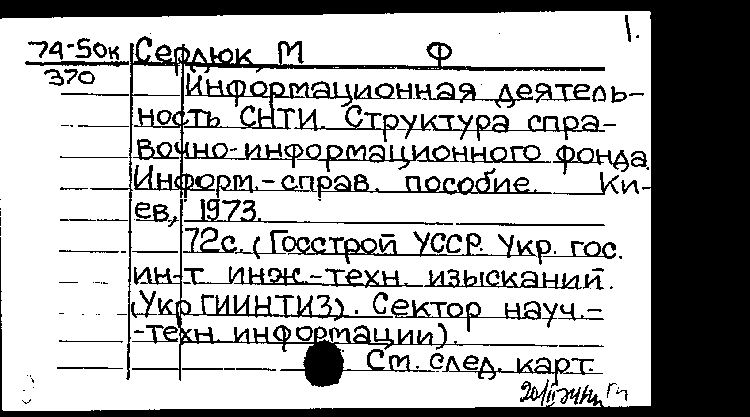 1.
74-50к Сердюк М Ф
370
Информационная деятель-
ность СНТИ. Структура спра-
вочно-информационного фонда
Информ.-справ. пособие. Ки-
ев, 1973.
72с. (Госстрой УССР. Укр. гос.
ин-т инж.-техн. изысканий.
(УкрГИИНТИЗ). Сектор науч.-
-техн. информации).
См. след. карт.